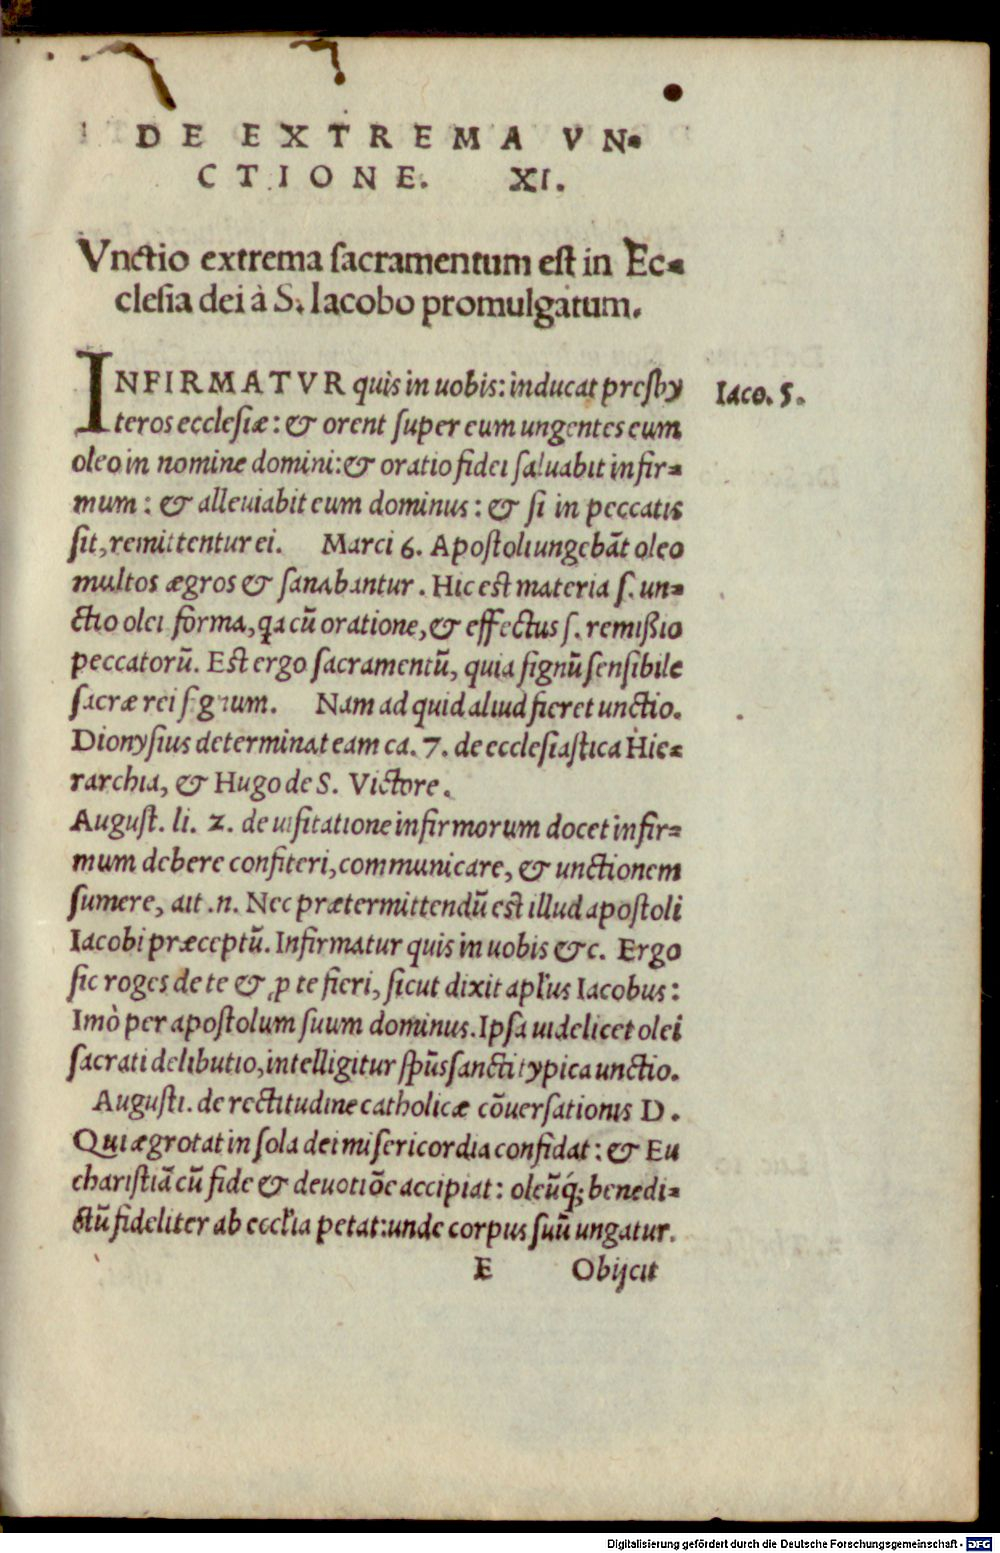 DE EXTREMA VN-
CTIONE. XI.
Vnctio extrema sacramentum est in Ec-
clesia dei à S. Iacobo promulgatum.
INFIRMATVR quis in uobis: inducat presby
Iaco. 5.
teros ecclesiæ: & orent super eum ungentes eum
oleo in nomine domini: & oratio fidei saluabit infir-
mum: & alleuiabit eum dominus: & si in peccatis
sit, remittentur ei. Marci 6. Apostoli ungebāt oleo
multos ægros & sanabantur. Hic est materia s. un-
ctio olei forma, qa cū oratione, & effectus s. remißio
peccatorū. Est ergo sacramentū, quia signū sensibile
sacræ rei signum. Nam ad quid aliud fieret unctio.
Dionysius determinat eam ca. 7. de ecclesiastica Hie-
rarchia, & Hugo de S. Victore.
August. li. 2. de uisitatione infirmorum docet infir-
mum debere confiteri, communicare, & unctionem
sumere, ait .n. Nec prætermittendū est illud apostoli
Iacobi præceptū. Infirmatur quis in uobis &c. Ergo
sic roges de te & ꝓ te fieri, sicut dixit apl'us Iacobus:
Imò per apostolum suum dominus. Ipsa uidelicet olei
sacrati delibutio, intelligitur sp̄us sancti typica unctio.
Augusti. de rectitudine catholicæ cōuersationis D.
Qui ægrotat in sola dei misericordia confidat: & Eu
charistiā cū fide & deuotiōe accipiat: oleūq́; benedi-
ctū fideliter ab eccl'ia petat: unde corpus suū ungatur.
E Obijcit
Digitalisierung gefördert durch die Deutsche Forschungsgemeinschaft - DFG